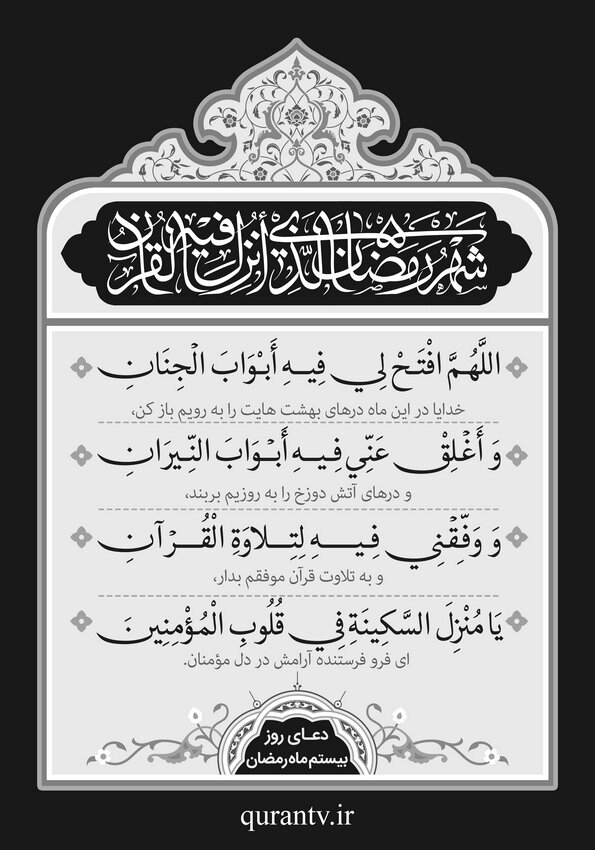 شَهْرُ رَمَضَانَ الَّذِي أُنْزِلَ فِيهِ الْقُرْآنُ
اللَّهُمَّ افْتَحْ لِي فِيهِ أَبْوَابَ الْجِنَانِ
خدایا در این ماه درهای بهشت هایت را به رویم باز کن،
وَ أَغْلِقْ عَنِّي فِيهِ أَبْوَابَ النِّيرَانِ
و درهای آتش دوزخ را به روزیم بربند،
وَ وَفِّقْنِي فِيهِ لِتِلاوَةِ الْقُرْآنِ
و به تلاوت قرآن موفقم بدار،
يَا مُنْزِلَ السَّكِينَةِ فِي قُلُوبِ الْمُؤْمِنِينَ
ای فرو فرستنده آرامش در دل مؤمنان.
دعای روز
بیستم ماه رمضان
qurantv.ir